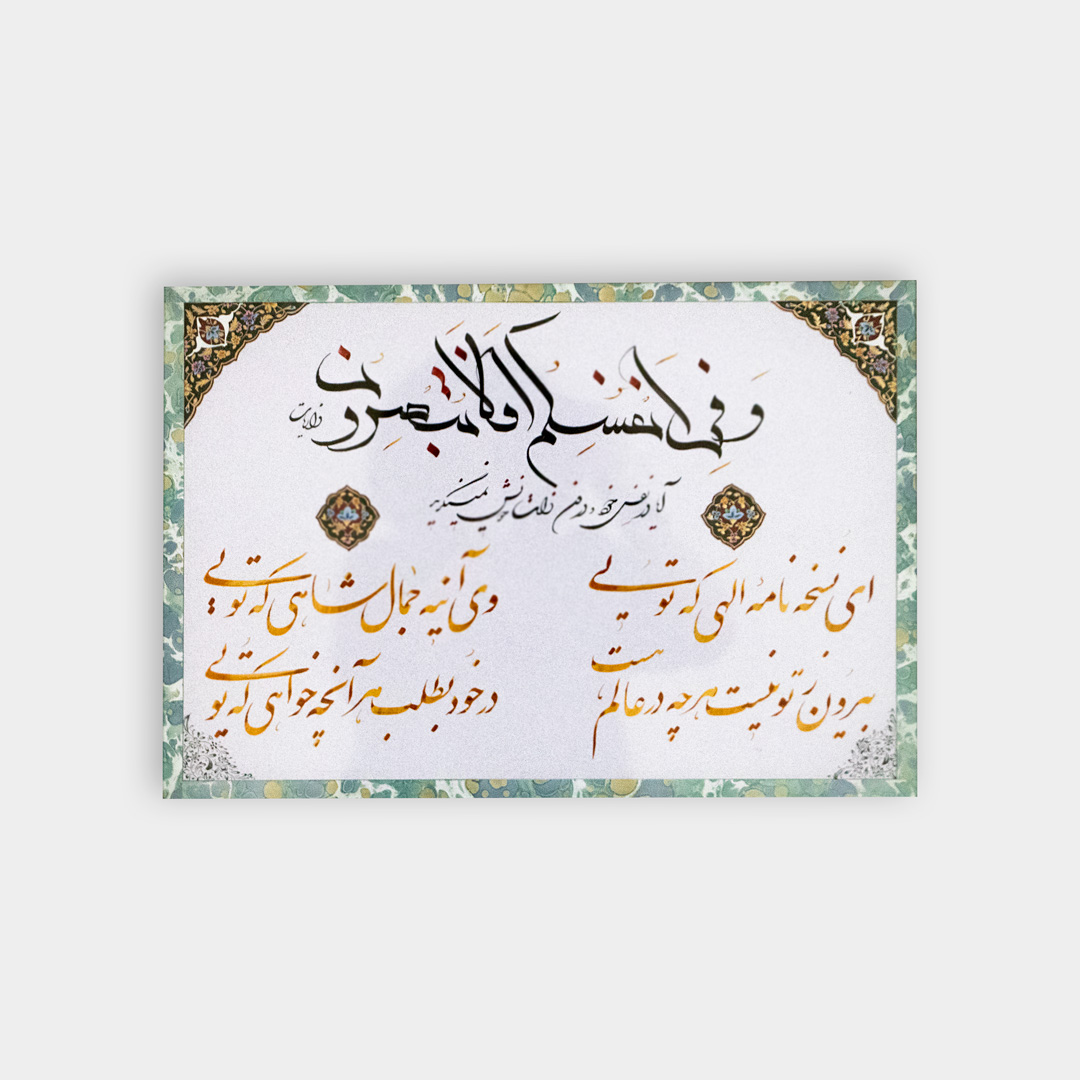 و فی انفسکم افلا تبصرون
ذاریات
آیا در نفس خود و در فن ذات خویش نمینگرید
ای نسخه نامه الهی که تویی وی آینه جمال شاهی که تویی
بیرون ز تو نیست هرچه در عالم هست در خود بطلب هر آنچه خواهی که تویی